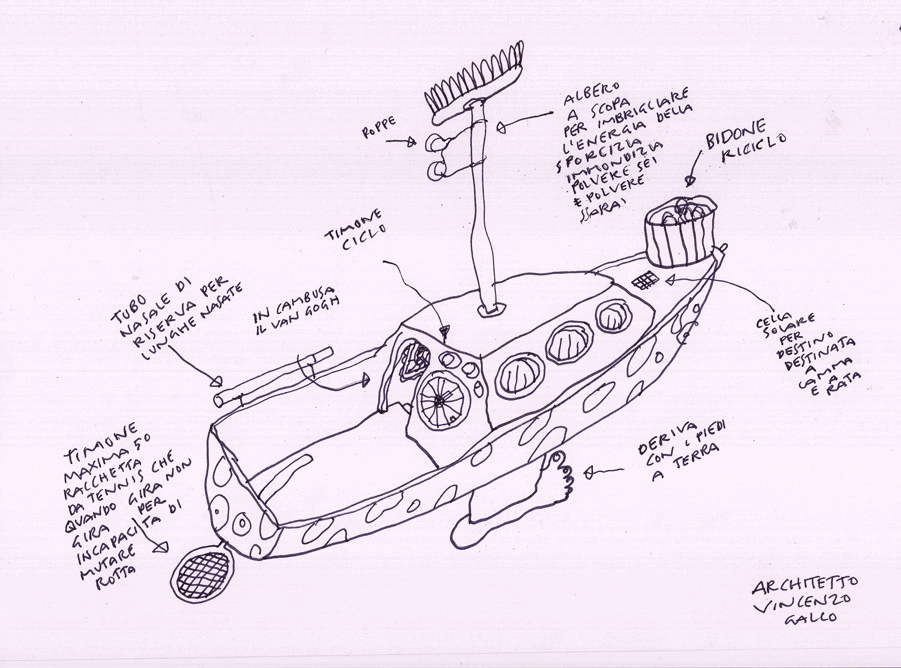 POPPE
ALBERO
A SCOPA
PER IMBRIGLIARE
L'ENERGIA DELLA
SPORCIZIA
IMMONDIZIA
POLVERE SEI
E POLVERE
SARAI
BIDONE
RICICLO
TIMONE
CICLO
TUBO
NASALE DI
RISERVA PER
LUNGHE NASATE
IN CAMBUSA
IL VAN GOGH
CELLA
SOLARE
PER
DESTINO
DESTINATA
A
CAMMA
E RATA
TIMONE
MAXIMA 50
RACCHETTA
DA TENNIS CHE
QUANDO GIRA NON
GIRA PER
INCAPACITA DI
MUTARE
ROTTA
DERIVA
CON I PIEDI
A TERRA
ARCHITETTO
VINCENZO
GALLO